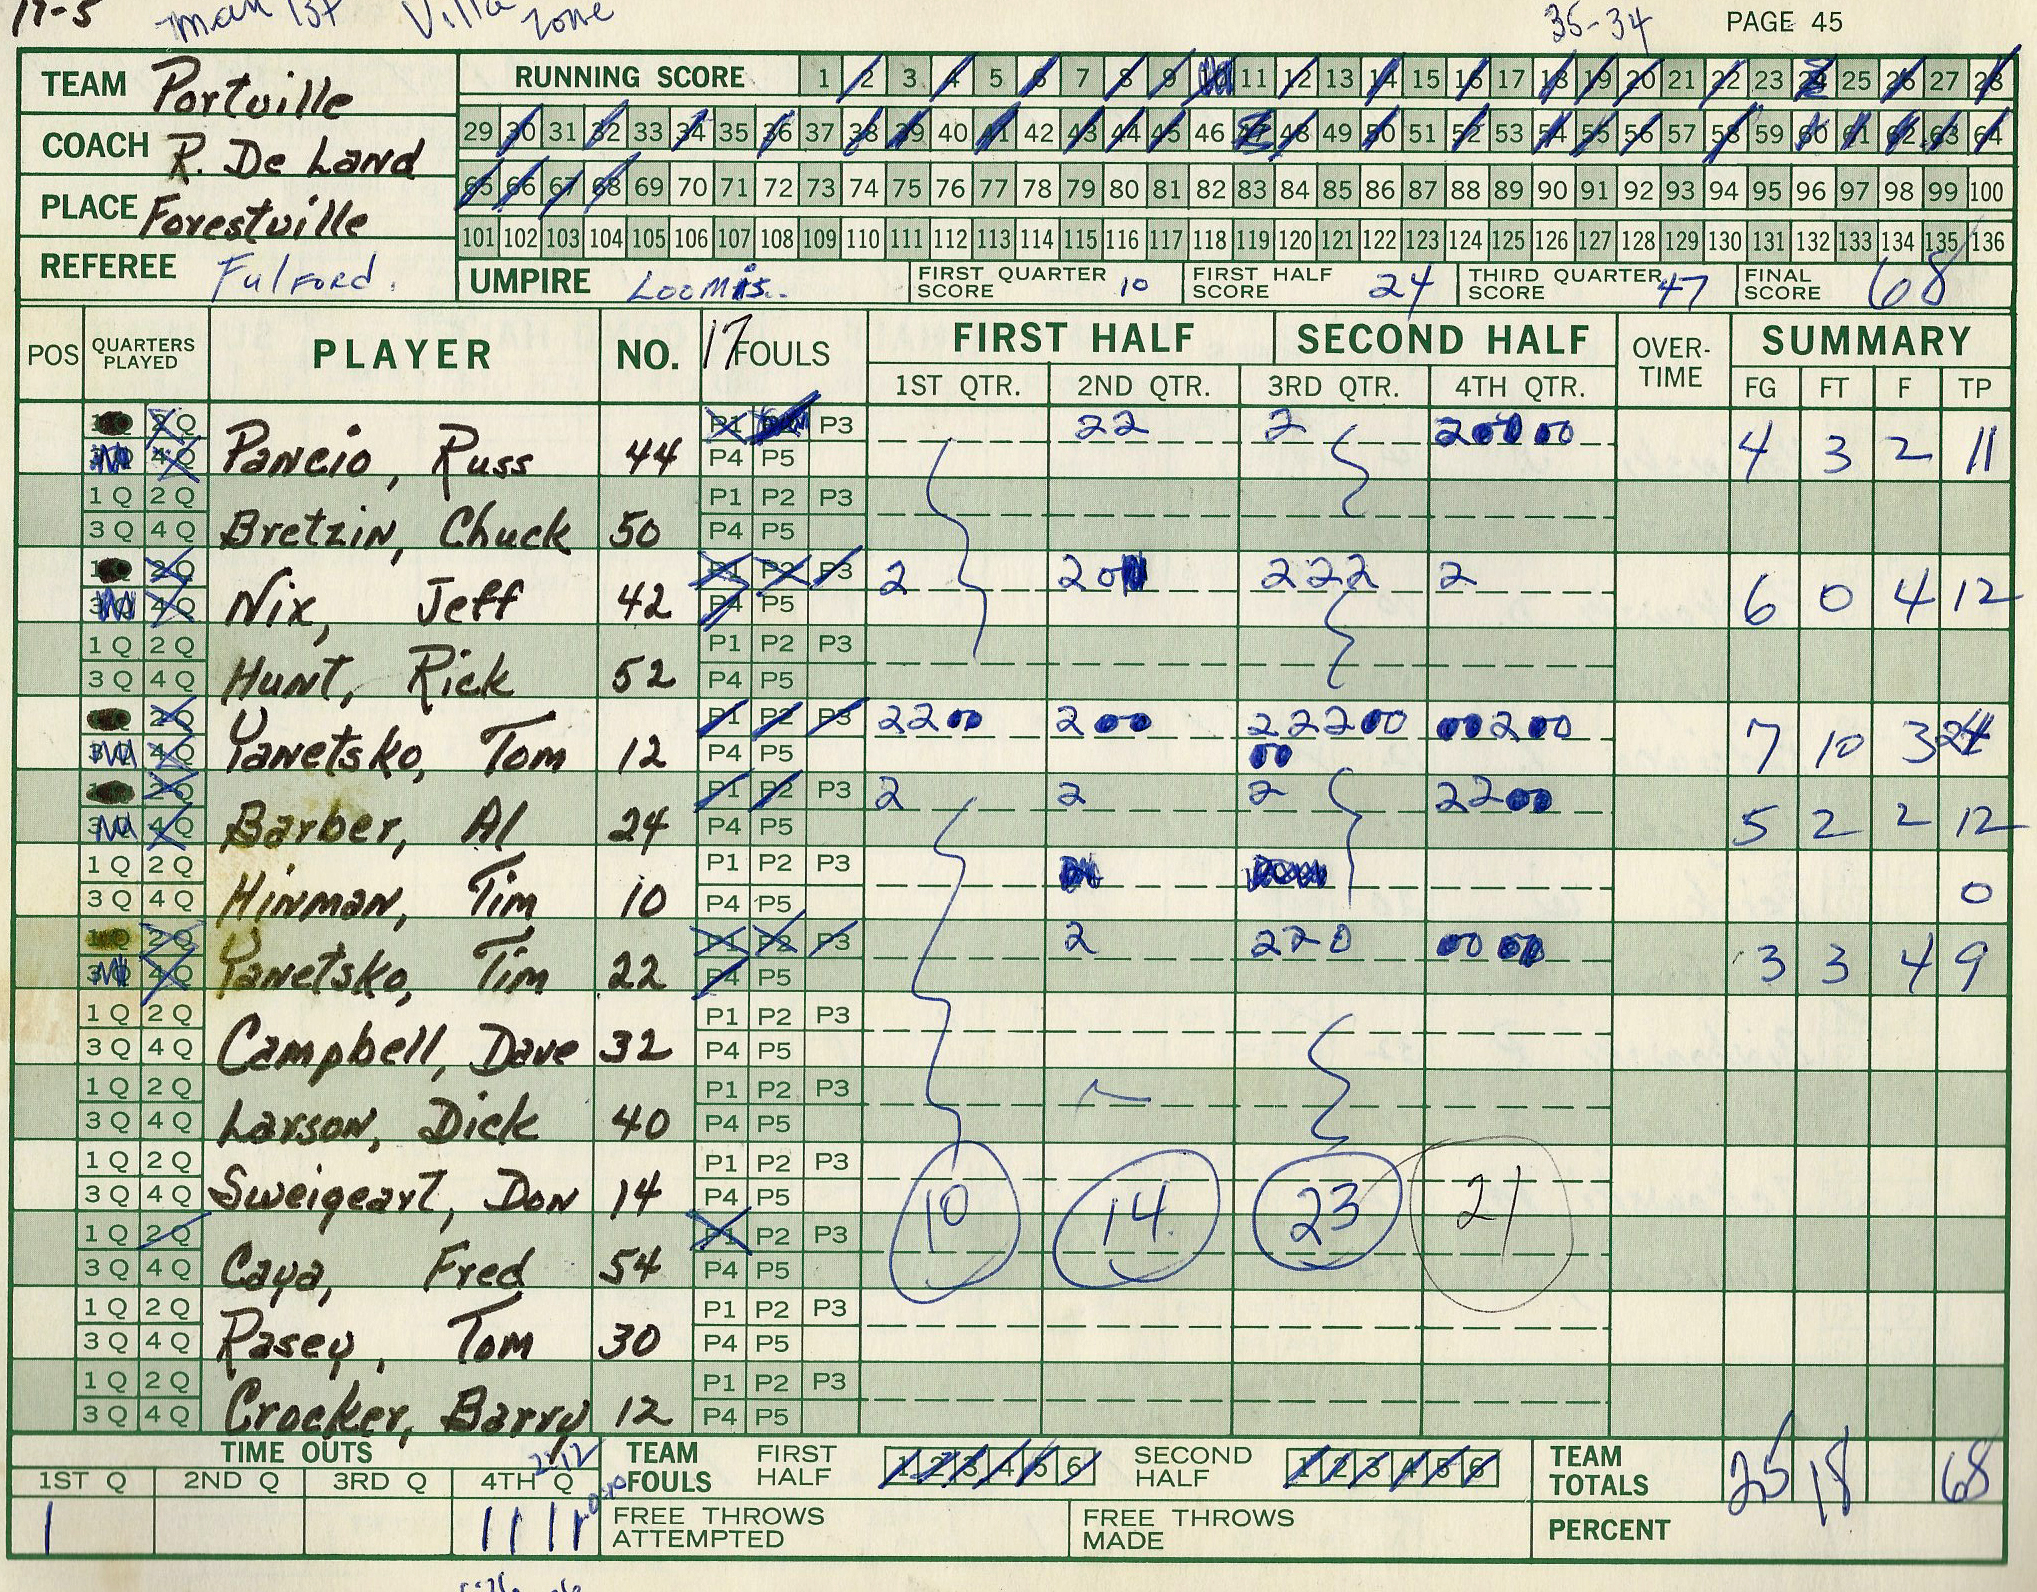 17-5 Man 1st Villa zone 35-34 PAGE 45
TEAM Portville
COACH R. De Land
PLACE Forestville
REFEREE Fulford.
RUNNING SCORE 1 2 3 4 5 6 7 8 9 10 11 12 13 14 15 16 17 18 19 20 21 22 23 24 25 26 27 28
29 30 31 32 33 34 35 36 37 38 39 40 41 42 43 44 45 46 47 48 49 50 51 52 53 54 55 56 57 58 59 60 61 62 63 64
65 66 67 68 69 70 71 72 73 74 75 76 77 78 79 80 81 82 83 84 85 86 87 88 89 90 91 92 93 94 95 96 97 98 99 100
101 102 103 104 105 106 107 108 109 110 111 112 113 114 115 116 117 118 119 120 121 122 123 124 125 126 127 128 129 130 131 132 133 134 135 136
UMPIRE Loomis. FIRST QUARTER SCORE 10 FIRST HALF SCORE 24 THIRD QUARTER SCORE 47 FINAL SCORE 68
POS QUARTERS PLAYED PLAYER NO. 17 FOULS FIRST HALF SECOND HALF OVER-TIME SUMMARY
1ST QTR. 2ND QTR. 3RD QTR. 4TH QTR. FG FT F TP
2Q P1 P3 22 2 200000
4Q Pancio, Russ 44 P4 P5 4 3 2 11
1Q 2Q P1 P2 P3
3Q 4Q Bretzin, Chuck 50 P4 P5
2Q P1 P2 P3 2 20 222 2
3Q 4Q Nix, Jeff 42 P4 P5 6 0 4 12
1Q 2Q P1 P2 P3
3Q 4Q Hunt, Rick 52 P4 P5
2Q P1 P2 P3 2200 200 22200 00200
3Q 4Q Yanetsko, Tom 12 P4 P5 00 7 10 3 24
2Q P1 P2 P3 2 2 2 2200
3Q 4Q Barber, Al 24 P4 P5 5 2 2 12
1Q 2Q P1 P2 P3
3Q 4Q Hinman, Tim 10 P4 P5 0
1Q 2Q P1 P2 P3 2 220 00 00
3Q 4Q Yanetsko, Tim 22 P4 P5 3 3 4 9
1Q 2Q P1 P2 P3
3Q 4Q Campbell, Dave 32 P4 P5
1Q 2Q P1 P2 P3
3Q 4Q Larson, Dick 40 P4 P5
1Q 2Q P1 P2 P3
3Q 4Q Sweigeart, Don 14 P4 P5 10 14 23 21
1Q 2Q P1 P2 P3
3Q 4Q Caya, Fred 54 P4 P5
1Q 2Q P1 P2 P3
3Q 4Q Rasey, Tom 30 P4 P5
1Q 2Q P1 P2 P3
3Q 4Q Crocker, Barry 12 P4 P5
TIME OUTS 2:12 TEAM FOULS FIRST HALF 1 2 3 4 5 6 SECOND HALF 1 2 3 4 5 6 TEAM TOTALS 25 18 68
1ST Q 2ND Q 3RD Q 4TH Q
FREE THROWS ATTEMPTED FREE THROWS MADE PERCENT